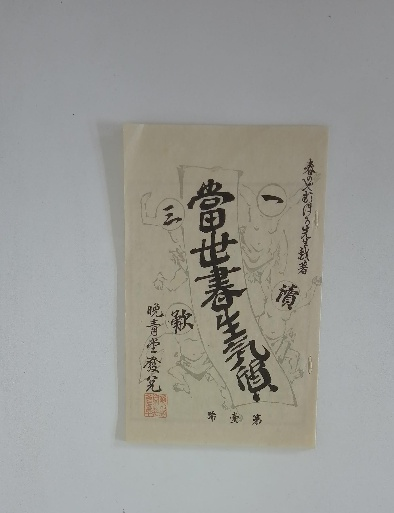 春のやおぼろ先生戯著
一
讀
當世書生氣質
三
歎
晩青堂發兌
第壹號